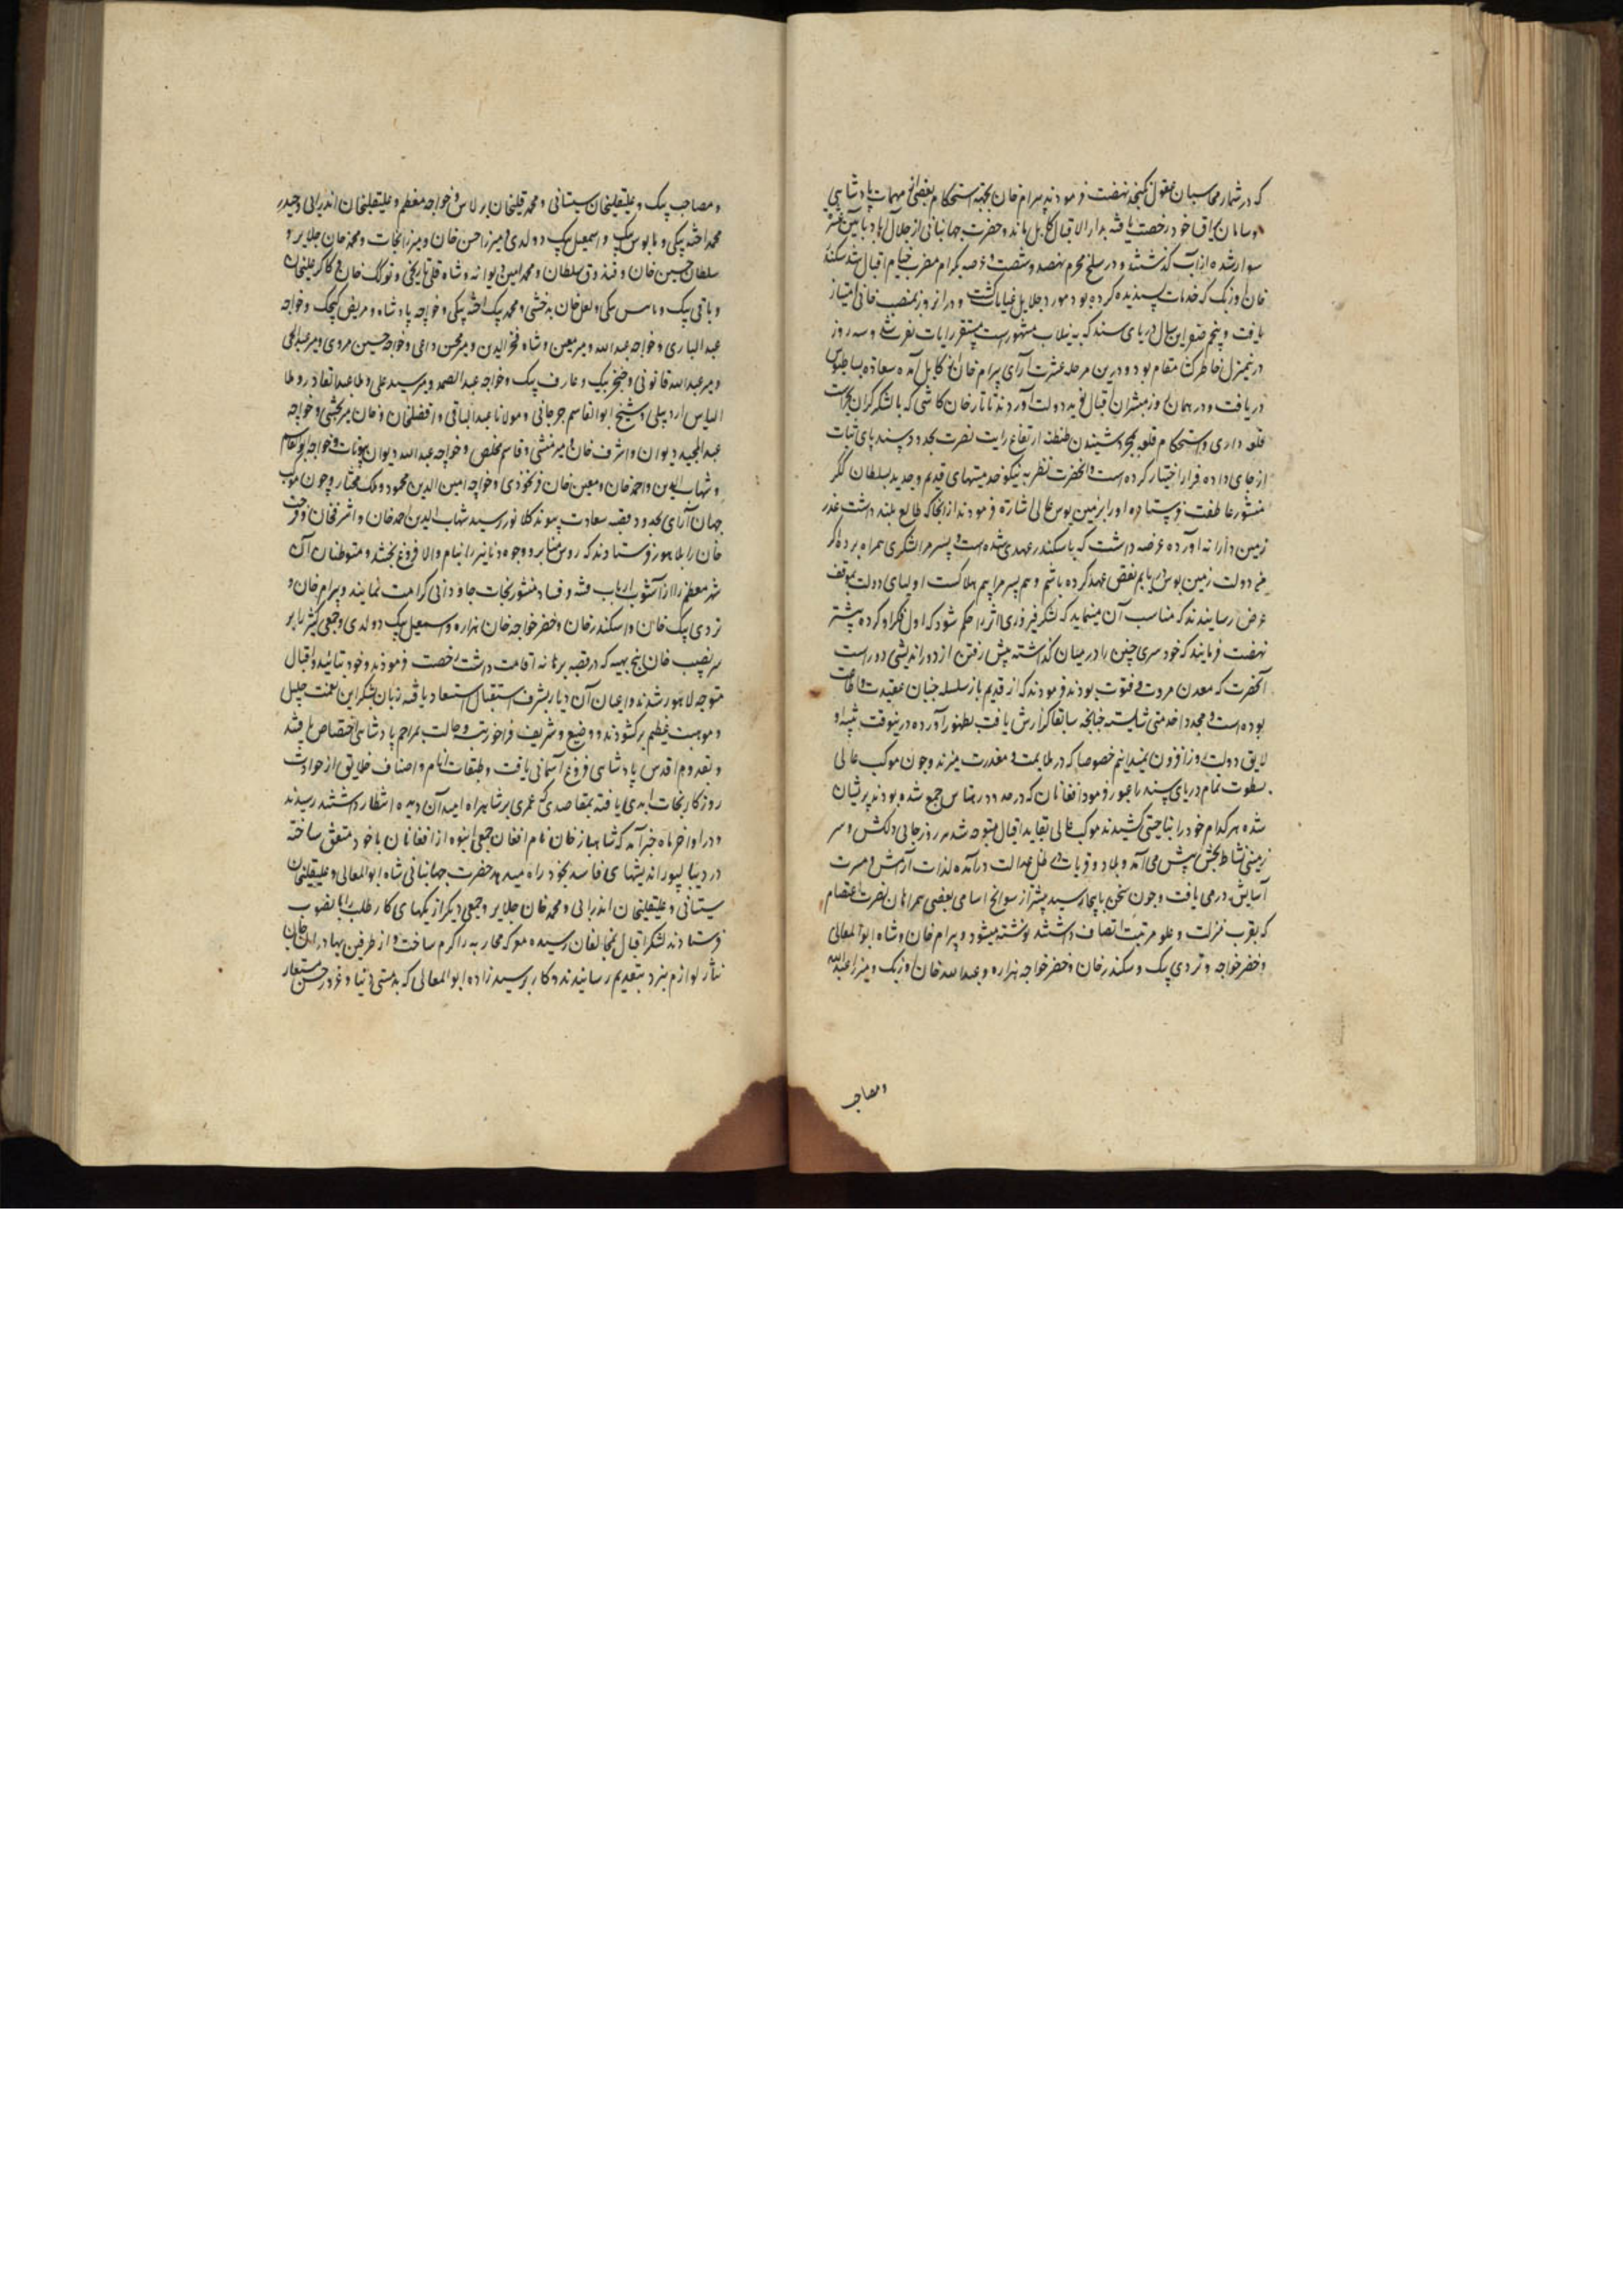 که در شمار محاسبان عقول نگنجد نهضت فرمودند بیرام خان بجهة استحکام بعضی از مهمات پادشاهی
و سامان یراق خود رخصت یافته بدار الاقبال کابل ماند و حضرت جهانبانی از جلال آباد
سوار شده از آب گذشتند و در سلخ محرم نهصد و شصت و عرصه بکرام مضرب خیام اقبال شد سکندر
خان اوزبک که خدمات پسندیده کرده بود مورد جلایل عنایات گشت و در انروز بمنصب خانی امتیاز
یافت و پنجم صفر این سال دریای سند که به نیلاب مشهور است مستقر رایات نصرت شد و سه روز
درینمنزل مقام بود و درین مرحله عشرت آرای بیرام خان از کابل آمده سعادة بساطبوس
دریافت و در همان روز مبشران اقبال نوید دولت آوردند تاتار خان کاشی که با لشکر گران بحراست
قلعه داری و استحکام قلعه بمجرد شنیدن طنطنه ارتفاع رایت نصرت بحدود سند پای ثبات
از جای داده فرار اختیار کرده است و آنحضرت نظر به نیکو خدمتیهای قدیم و جدید بسلطان ککر
منشور عاطفت فرستاده او را بزمین بوس عالی اشارة فرمودند از انجا که طالع بلند داشت عذر
زمین دارانه آورده عرضه داشت که با سکندر عهدی شده است و پسر مرا لشکری همراه برده اگر
من دولت زمین بوس دریابم نقض عهد کرده باشم و هم پسر مرا بیم هلاکست اولیای دولت بموقف
عرض رسانیدند که مناسب آن مینماید که لشکر فیروزی اثر را حکم شود که اول فکر او کرده پیشتر
نهضت فرمایند که خود سری چنین را در میان گذاشته پیش رفتن از دور اندیشی دور است
آنحضرت که معدن مروت و فتوت بودند فرمودند که از قدیم باز سلسله جنبان عقیدت و اطاعت
بوده است و مجددا خدمتی شایسته چنانچه سابقا گزارش یافت بظهور آورده درینوقت تنبیه او
لایق دولت روز افزون نمیدانیم خصوصا که در ملایمت و معذرت میزند و چون موکب عالی
سطوت تمام دریای سند را عبور فرمود افغانان که در حدود رهتاس جمع شده بودند پریشان
شده هر کدام خود را بناحیتی کشیدند موکب عالی بقاید اقبال متوجه شد هر روز جائی دلکش و سر
زمینی نشاط بخش پیش می آمد و بلاد و قریات در ظل عدالت درآمده لذات آرامش و مسرت
آسایش درمی یافت و چون سخن باینجا رسید پیشتر از سوانح اسامی بعضی همراهان نصرت اعتصام
که بقرب منزلت و علو مرتبت اتصاف داشتند نوشته میشود بیرام خان و شاه ابو المعالی
و خضر خواجه و تردی بیک و سکندر خان و خضر خواجه هزاره و عبد الله خان اوزبک و میرزا عبد الله
و مصاحب
و مصاحب بیک و علیقلیخان سیستانی و محمد قلیخان برلاس و خواجه معظم و علیقلیخان اندرابی و حیدر
محمد اخته بیکی و بابوس بیک و اسمعیل بیک دولدی و میرزا حسن خان و میرزا نجات و محمد خان جلایر و
سلطان حسین خان و قندوق سلطان و محمد امین دیوانه و شاه قلی نارنجی و تولک خان و کاکر علیخان
و باقی بیک و لعل خان بدخشی و محمد بیک اخته بیکی و خواجه پادشاه و مریض کیچک و خواجه
عبد الباری و خواجه عبد الله و میر معین و شاه فخر الدین و میر محسن داعی و خواجه حسین مروی و میر عبد الحی
و میر عبد الله قانونی و خنجر بیک و عارف بیک و خواجه عبد الصمد و میر سید علی و ملا عبد القادر و ملا
الیاس اردبیلی و شیخ ابو القاسم جرجانی و مولانا عبد الباقی و افضلخان و خان میر بخشی و خواجه
عبد المجید دیوان و اشرف خان میر منشی و قاسم مخلص و خواجه عبد الله دیوان بیوتات و خواجه ابو القاسم
و شهاب الدین و احمد خان و معین خان فرنخودی و خواجه امین الدین محمود و ملک مختار و چون موکب
جهان آرای بحدود قصبه سعادت پیوند کلانور رسید شهاب الدین احمد خان و اشرفخان و فرحت
خان را بلاهور فرستادند که روس منابر و وجوه دنانیر را بنام والا فروغ بخشند و متوطنان آن
شهر معظم را از آشوب ارباب فتنه و فساد منشور نجات جاودانی کرامت نمایند و بیرام خان و
تردی بیک خان و اسکندر خان و خضر خواجه خان هزاره و اسمعیل بیک دولدی و جمعی کثیر را بر
سر نصیب خان پنج بهیه که در قصبه هرهانه اقامت داشت رخصت فرمودند و خود بتائید و اقبال
متوجه لاهور شدند و اعیان آن دیار بشرف استقبال استسعاد یافته زبان بشکر این نعمت جلیل
و موهبت عظیم برگشودند و وضیع و شریف فراخور رتبت و حالت بمراحم پادشاهی اختصاص یافتند
و بقدوم اقدس پادشاهی فروغ آسمانی یافت و طبقات انام و اصناف خلایق از حوادث
روزگار نجات ابدی یافته بمقاصدی که عمری بر شاهراه امید آن دیده انتظار داشتند رسیدند
و در اواخر ماه خبر آمد که شاهباز خان نام افغان جمعی انبوه از افغانان با خود متفق ساخته
در دیبالپور اندیشهای فاسد بخود راه میدهد حضرت جهانبانی شاه ابو المعالی و علیقلیخان
سیستانی و علیقلیخان اندرابی و محمد خان جلایر و جمعی دیگر از یکهای کار طلب را بانصوب
فرستادند لشکر اقبال بمخالفان رسیده معرکه محاربه را گرم ساخت و از طرفین بهادران جان
نثار لوازم نبرد بتقدیم رسانیدند و کار بر سید زاده ابو المعالی که بدمستی دنیا و غرور حسن مستعار